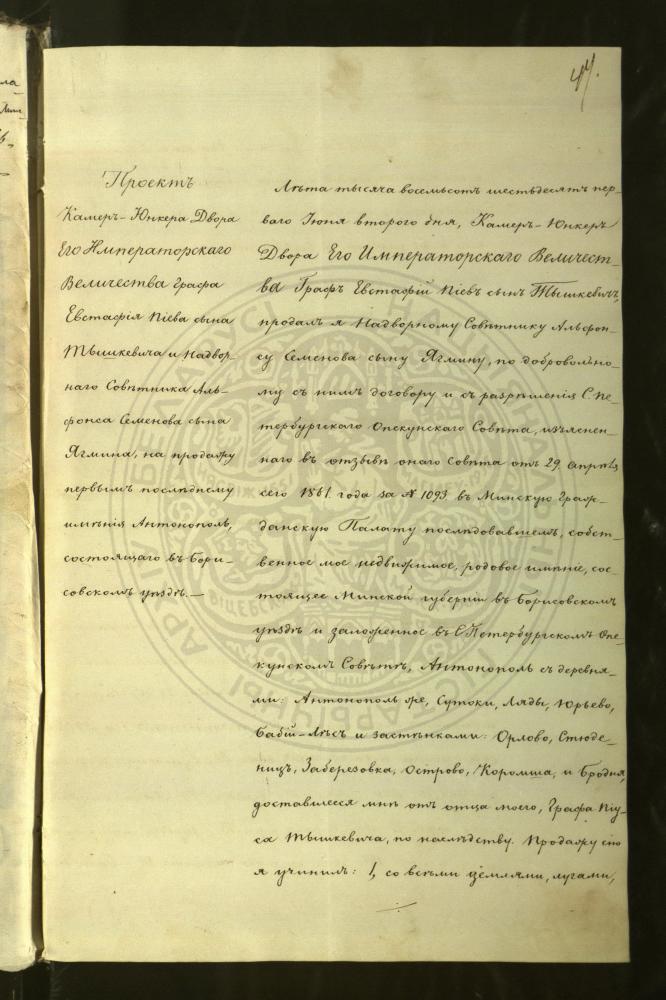 47.
Проектъ
Камеръ-Юнкера Двора
Его Императорскаго
Величества Графа
Евстафія Піева сына
Тышкевича и Надвор-
наго Совѣтника Аль-
фонса Семенова сына
Ягмина, на продажу
первымъ послѣднему
имѣнія Антонополь,
состоящаго въ Бори-
совскомъ уѣздѣ.—
Лѣта тысяча восемьсотъ шестьдесятъ пер-
ваго Іюня втораго дня, Камеръ-Юнкеръ
Двора Его Императорскаго Величест-
ва Графъ Евстафій Піевъ сынъ Тышкевичъ,
продалъ я Надворному Совѣтнику Альфон-
су Семенова сыну Ягмину, по добровольно-
му съ нимъ договору и съ разрѣшенія С. Пе-
тербургскаго Опекунскаго Совѣта, изъяснен-
наго въ отзывѣ онаго Совѣта отъ 29 Апрѣля
сего 1861 года за № 1093 въ Минскую Граж-
данскую Палату послѣдовавшемъ, собст-
венное мое недвижимое, родовое имѣніе, сос-
тоящее Минской губерніи въ Борисовскомъ
уѣздѣ и заложенное въ С Петербургскомъ Опе-
кунскомъ Совѣтѣ, Антонополь съ деревня-
ми: Антонополь же, Сутоки, Ляды, Юрьево,
Бабій-Лѣсъ и застѣнками: Орлово, Стюде-
ницъ, Заберезовка, Острово, Коромша, и Бродня,
доставшееся мнѣ отъ отца моего, Графа Піу-
са Тышкевича, по наслѣдству. Продажу сію
я учинилъ: 1, со всѣми землями, лугами,